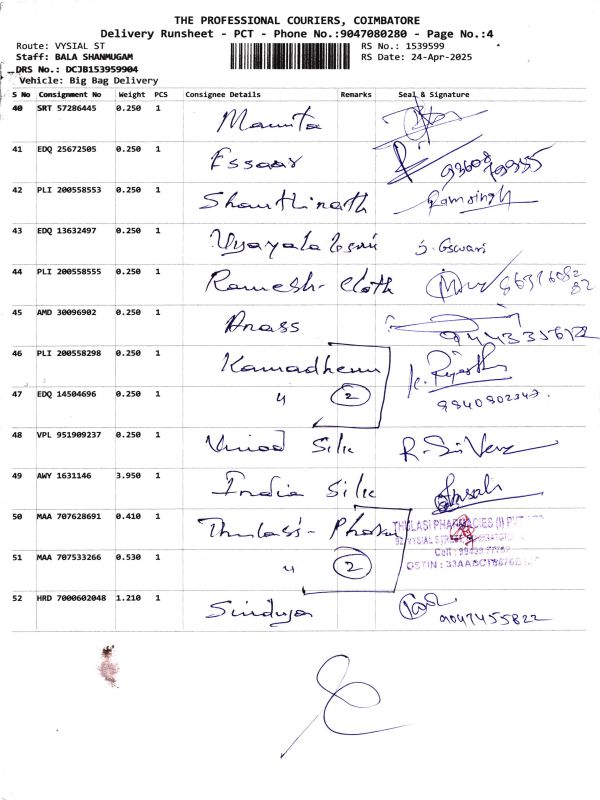 THE PROFESSIONAL COURIERS, COIMBATORE
Delivery Runsheet - PCT - Phone No.:9047080280 - Page No.:4
Route: VYSIAL ST
RS No.: 1539599
Staff: BALA SHANMUGAM
RS Date: 24-Apr-2025
DRS No.: DCJB153959904
Vehicle: Big Bag Delivery
S No Consignment No Weight PCS Consignee Details Remarks Seal & Signature
40 SRT 57286445 0.250 1 Mamta
41 EDQ 25672505 0.250 1 Essaar
42 PLI 200558553 0.250 1 Shanthinath Ramsingh
43 EDQ 13632497 0.250 1 S. Eswari
44 PLI 200558555 0.250 1 Ramesh cloth
45 AMD 30096902 0.250 1 Anass
46 PLI 200558298 0.250 1 Kamadhenu
47 EDQ 14504696 0.250 1 " 2
48 VPL 951909237 0.250 1 Vinod Silk
49 AWY 1631146 3.950 1 India Silk
50 MAA 707628691 0.410 1 Thulasi - THULASI PHARMACIES (I)
51 MAA 707533266 0.530 1 " 2
52 HRD 7000602048 1.210 1 Sinduja 9047455822